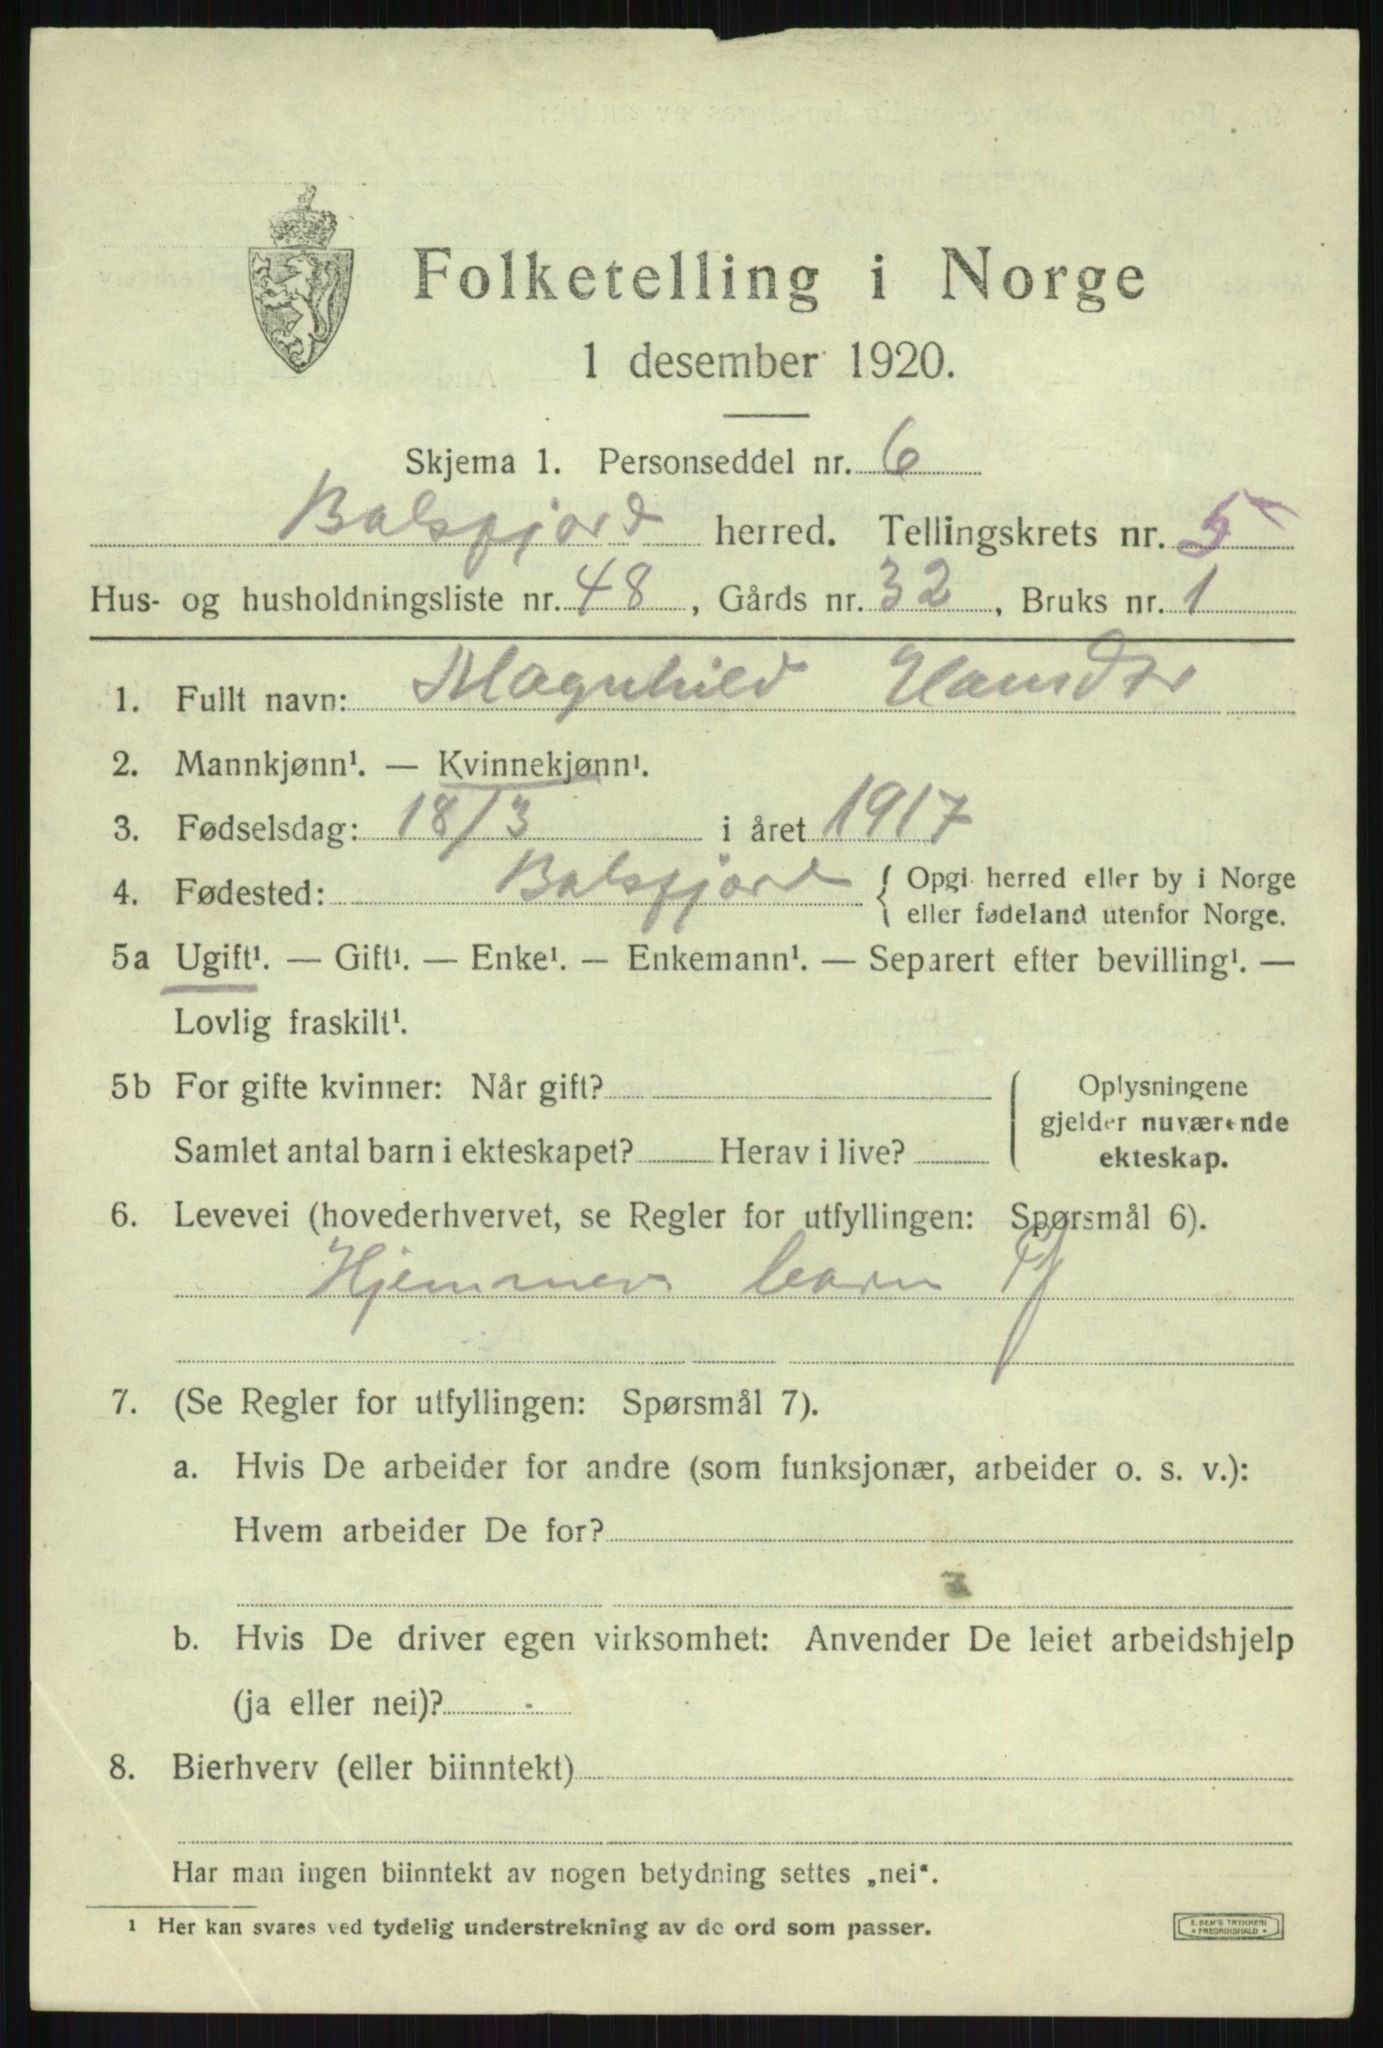 Folketelling i Norge
1 desember 1920.
Skjema 1. Personseddel nr. 6
Balsfjord herred. Tellingskrets nr. 5
Hus- og husholdningsliste nr. 48, Gårds nr. 32, Bruks nr. 1
1. Fullt navn: Magnhild Hansdtr
2. Mannkjønn¹. — Kvinnekjønn¹.
3. Fødselsdag: 18/3 i året 1917
4. Fødested: Balsfjord { Opgi herred eller by i Norge
eller fødeland utenfor Norge.
5a Ugift¹. — Gift¹. — Enke¹. — Enkemann¹. — Separert efter bevilling¹. —
Lovlig fraskilt¹.
5b For gifte kvinner: Når gift?
Samlet antal barn i ekteskapet? Herav i live?
Oplysningene
gjelder nuværende
ekteskap.
6. Levevei (hovederhvervet, se Regler for utfyllingen: Spørsmål 6).
Hjemmev barn
7. (Se Regler for utfyllingen: Spørsmål 7).
a. Hvis De arbeider for andre (som funksjonær, arbeider o. s. v.):
Hvem arbeider De for?
b. Hvis De driver egen virksomhet: Anvender De leiet arbeidshjelp
(ja eller nei)? -
8. Bierhverv (eller biinntekt)
Har man ingen biinntekt av nogen betydning settes „nei“.
1 Her kan svares ved tydelig understrekning av de ord som passer.
E. SEM'S TRYKKERI
• FREDRIKSHALD •